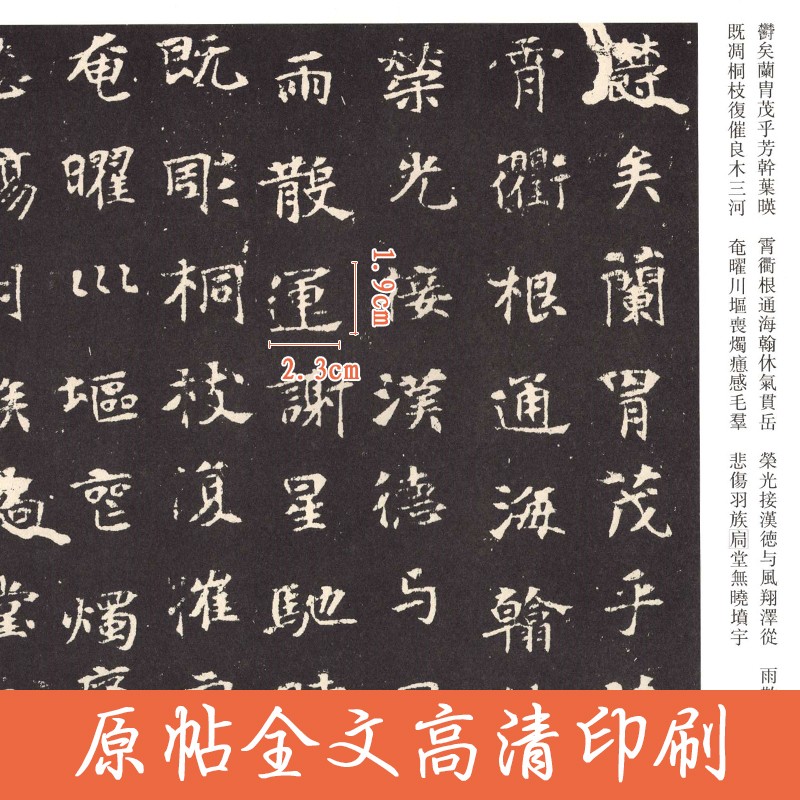 鬱矣蘭冑茂乎芳幹葉暎　霄衢根通海翰休氣貫岳　榮光接漢德与風翔澤從　雨
既凋桐枝復催良木三河　奄曜川塸喪燭痛感毛羣　悲傷羽族扃堂無曉墳宇
鬱矣蘭冑茂乎
霄衢根通海翰
榮光接漢德与
雨散運謝星馳
既彫桐枝復摧
奄曜川塸喪燭
1.9cm
2.3cm
原帖全文高清印刷